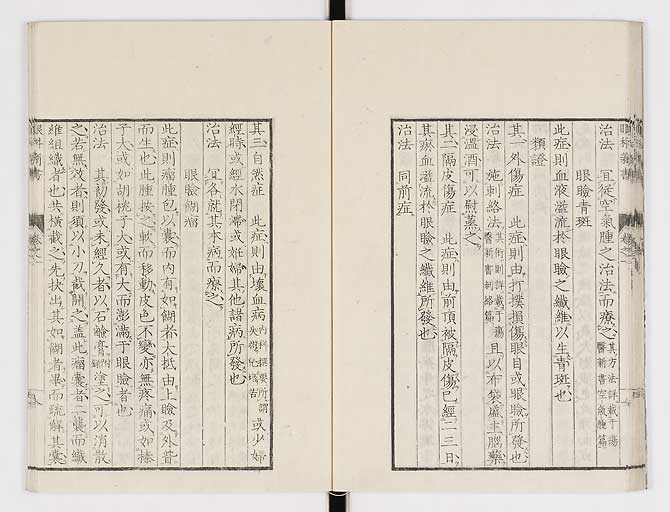 治法　宜從空氣腫之治法而療之其方法詳載于瘍醫新書空氣腫篇
眼瞼青斑
此症則血液溢流於眼瞼之纖維以生青斑也
類證
其一外傷症　此症則由打撲損傷眼目或眼瞼所發也
治法　施刺絡法其術則詳載于瘍醫新書刺絡篇且以布袋盛主腦藥
浸溫酒可以慰蒸之
其二隔皮傷症　此症則由前頂被隔皮傷已經二三日
其瘀血溢流於眼瞼之纖維所發也
治法　同前症
其三自然症　此症則由壞血病內科撰要所謂或少婦
經時或經水閉滯或妊婦其他諸病所發也
治法　宜各就其本病而療之
眼瞼餬瘤
此症則瘤腫包以囊而內有如餬者大抵由上瞼及外眥
而生也此腫按之軟而移動皮色不變亦無疼痛或如榛
子大或如胡桃子大或有大而澎滿于眼瞼者也
治法　其初發或未經久者以石鹼膏塗之可以消散
之若無效者則須以小刀截開之蓋此瘤囊者一囊而纖
維組織者也共橫截之先抉出其如餬者畢而疏解其囊
眼科新書